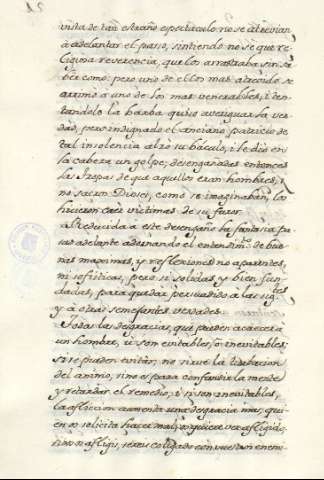 vista de tan estraño espectaculo no se atrevian
à adelantar el paso, sintiendo no se que re-
ligiosa reverencia, que los arrastraba sin sa-
ber como: pero uno de ellos mas atrevido se
arrimò a uno de los mas venerables, i ten-
tandole la barba quiso averiguar la ver-
dad, pero indignado el anciano patricio de
tal insolencia alzò su bàculo, i le diò en
la cabeza un golpe; desengañadas entonces
las tropas de que aquellos eran hombres, i
no sacros Dioses, como se imaginaban, los
hicieron caèr victimas de su furor.
Reducida a este desengaño la fantasia, pa-
sad adelante adornando el entendimto. de bue-
nas maximas, y reflexiones no aparentes,
ni sofisticas, pero si solidas y bien fun-
dadas, para quedar persuadido a las sigtes.
y a otras semejantes verdades.
Todas las desgracias, que pueden acaecer a
un hombre, ù son evitables, ò inevitables;
si se pueden evitar, no sirve la turbacion
del animo, sino es para confundir la mente
y retardar el remedio, i si son inevitables,
la afliccion aumenta una desgracia mas; qui-
en os solicita hacer mal, quiere veros afligido,
si no os afligis, os